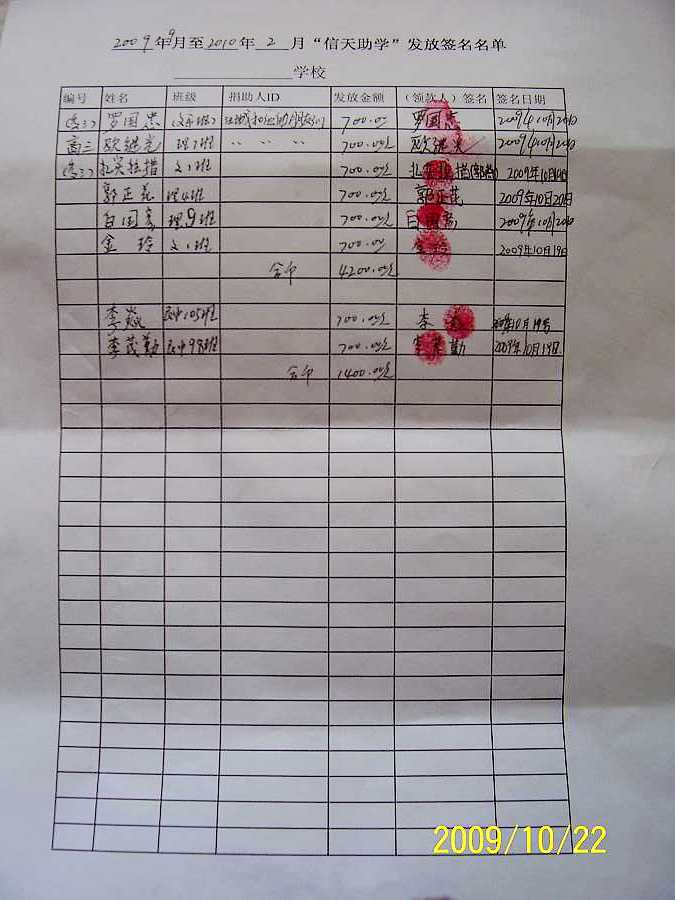 2009年9月至2010年 2 月“信天助学”发放签名名单
学校
编号 姓名 班级 捐助人ID 发放金额 (领款人)签名 签名日期
(高三) 罗国忠 700.00 罗国忠 2009年10月20日
高三 欧继光 理7班 〃 〃 〃 700.00元 欧继光 2009年10月20日
(高三) 扎英拉措 文1班 700.00元 扎英拉措 2009年10月19日
郭正花 理4班 700.00元 郭正花 2009年10月20日
白国秀 理9班 700.00元 2009年10月20日
金玲 文1班 700.00 金玲 2009年10月19日
合计 4200.00元
李焱 民中105班 700.00元 李焱 2009年10月19号
李茂勤 民中98班 700.00元 李茂勤 2009年10月19日
合计 1400.00元
2009/10/22